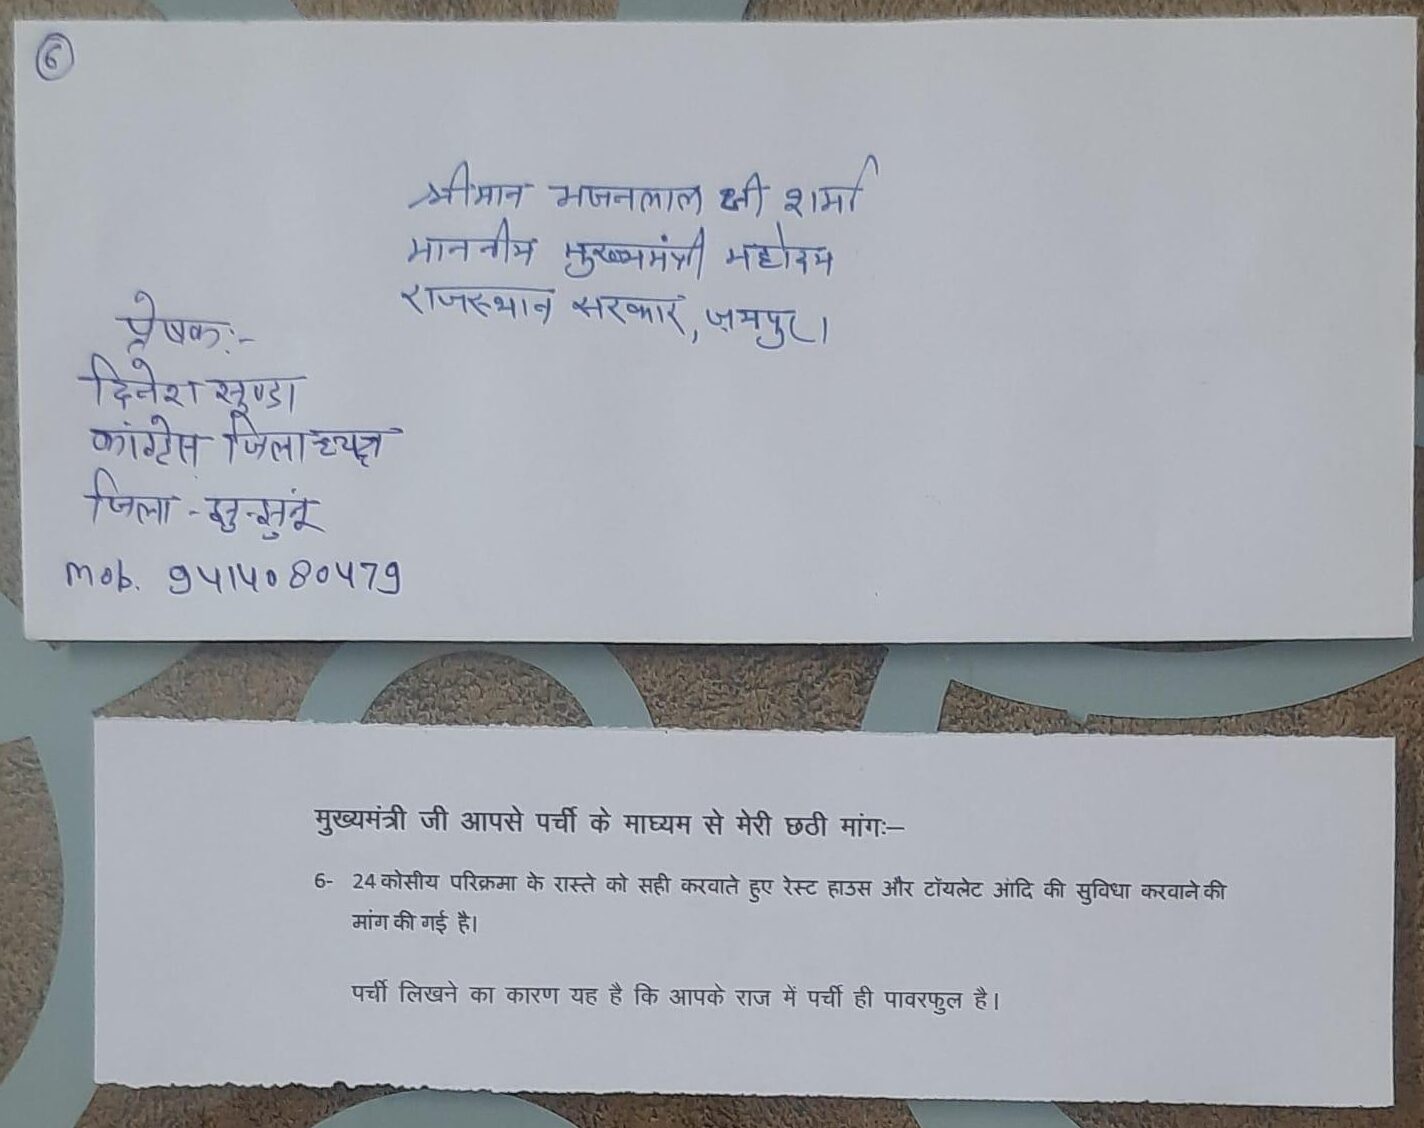 6
श्रीमान भजनलाल जी शर्मा
माननीय मुख्यमंत्री महोदय
राजस्थान सरकार, जयपुर।
प्रेषक:-
दिनेश सुण्डा
कांग्रेस जिलाध्यक्ष
जिला - झुन्झुनूं
mob. 9414080479
मुख्यमंत्री जी आपसे पर्ची के माध्यम से मेरी छठी मांगः–
6- 24 कोसीय परिक्रमा के रास्ते को सही करवाते हुए रेस्ट हाउस और टॉयलेट आदि की सुविधा करवाने की
मांग की गई है।
पर्ची लिखने का कारण यह है कि आपके राज में पर्ची ही पावरफुल है।